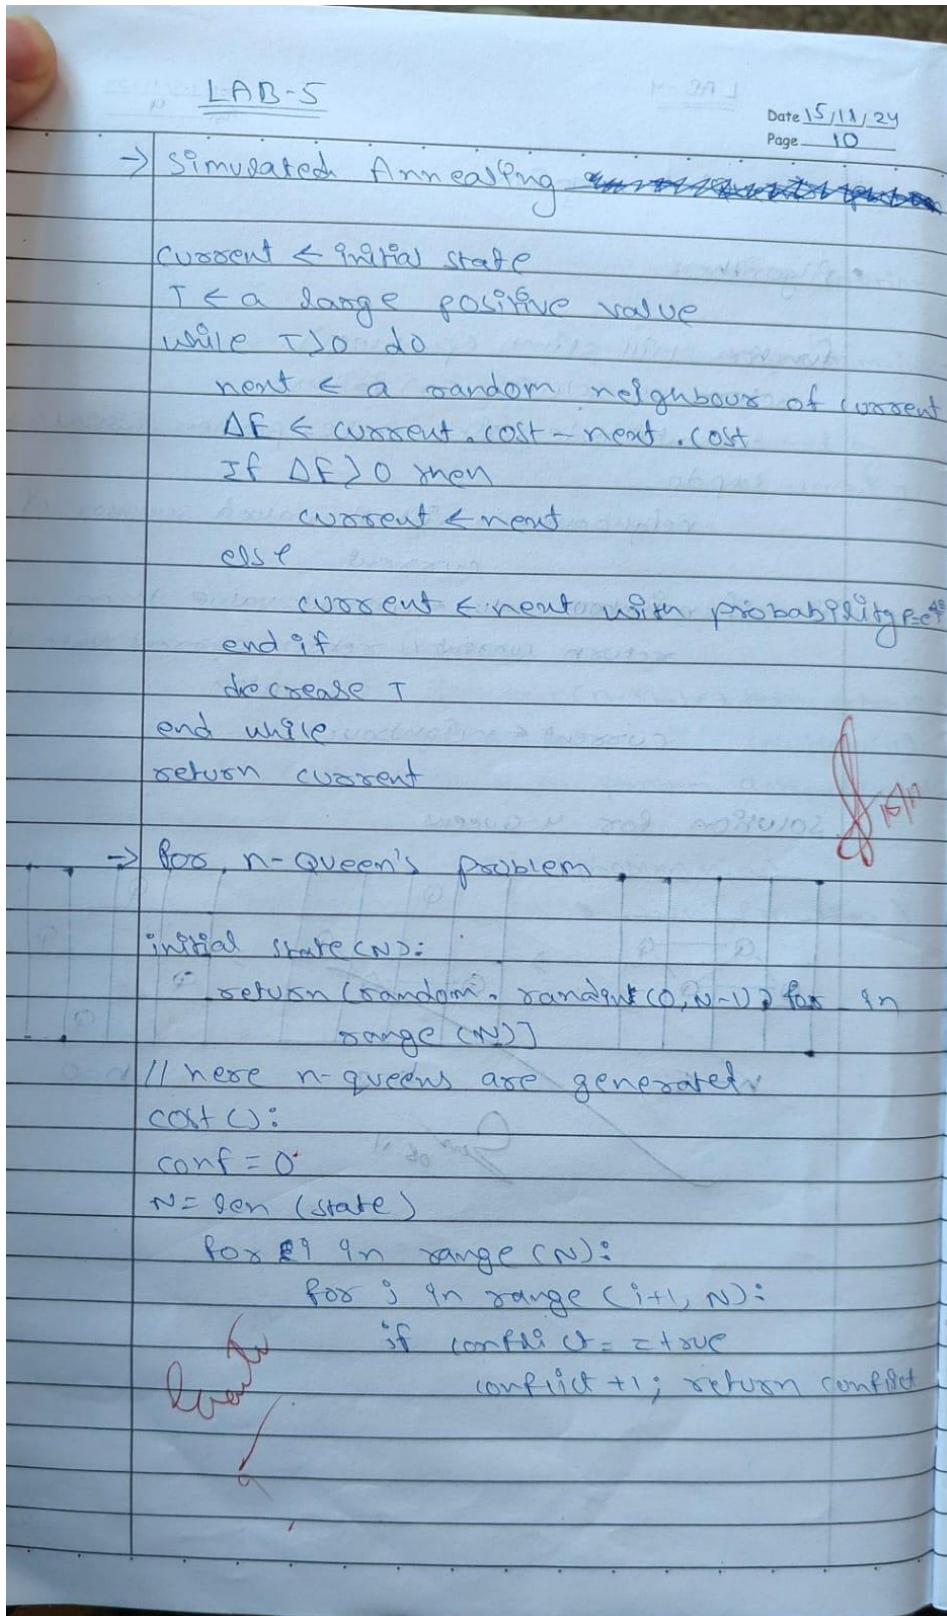 LAB-5
Date 15/11/24
Page 10
→ Simulated Annealing
current ← initial state
T ← a large positive value
while T>0 do
next ← a random neighbour of current
ΔE ← current.cost - next.cost
If ΔE > 0 then
current ← next
else
current ← next with probability P=e^ΔE/T
end if
decrease T
end while
return current
→ for, n-Queen's problem
initial state (N):
return (random.randint(0, N-1) for in
range (N)]
// here n-queens are generated.
cost ():
conf = 0
N = len (state)
for i in range (N):
for j in range (i+1, N):
if conflict = = true
conflict +1; return conflict